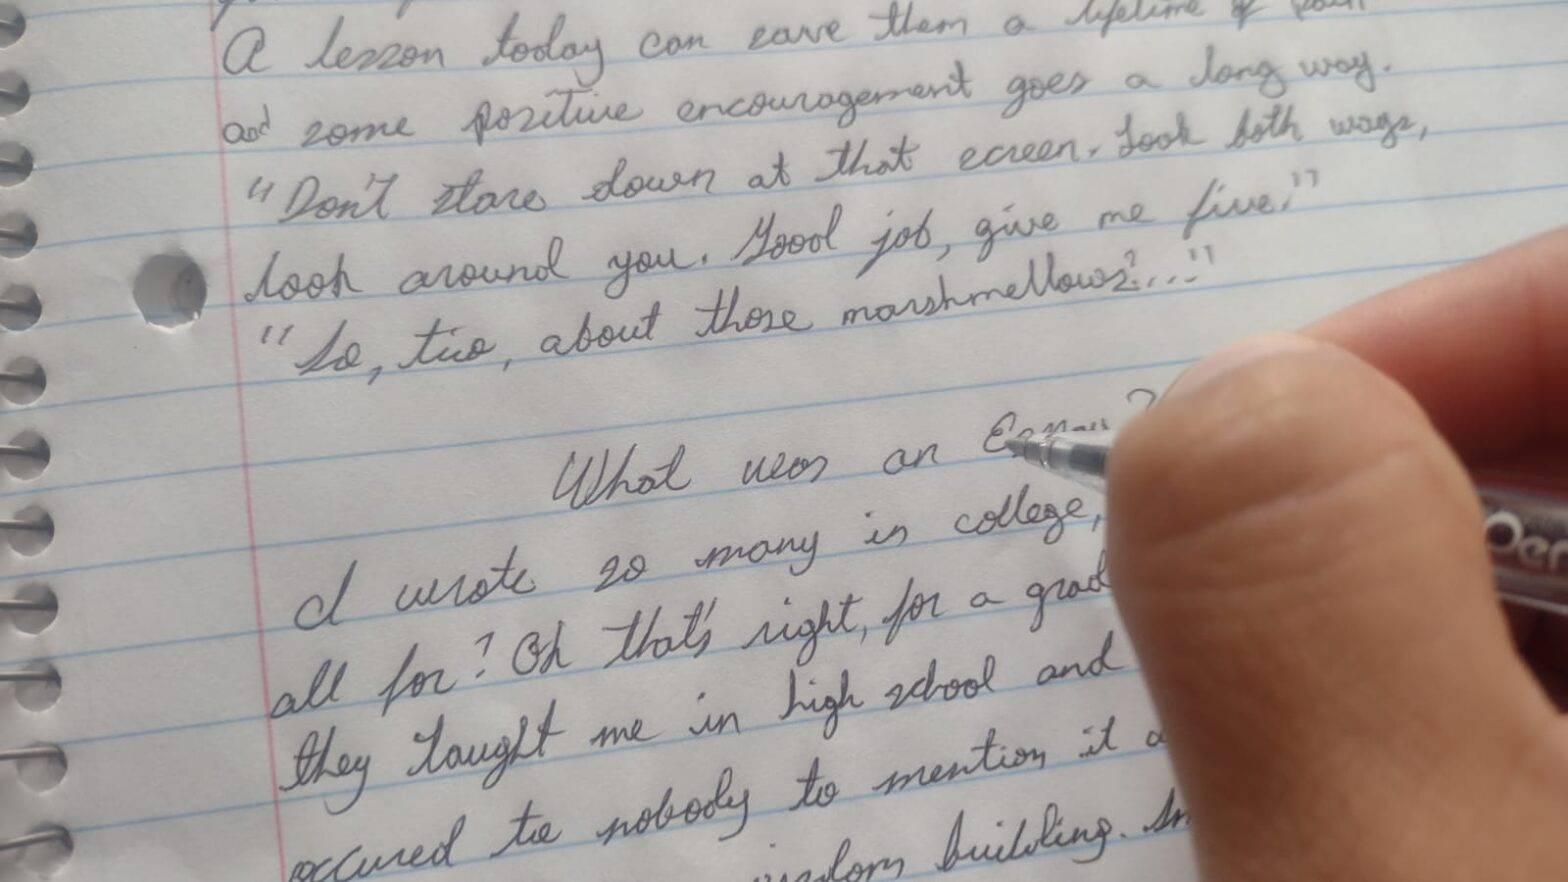 A lesson today can save them a lifetime of pain
and some positive encouragement goes a long way.
"Don't stare down at that screen. Look both ways,
look around you. Good job, give me five."
"So, tio, about those marshmellows?..."
What was an Essay?
I wrote so many in college,
all for? Oh that's right, for a grad
they taught me in high school and
occured to nobody to mention it a
building. In